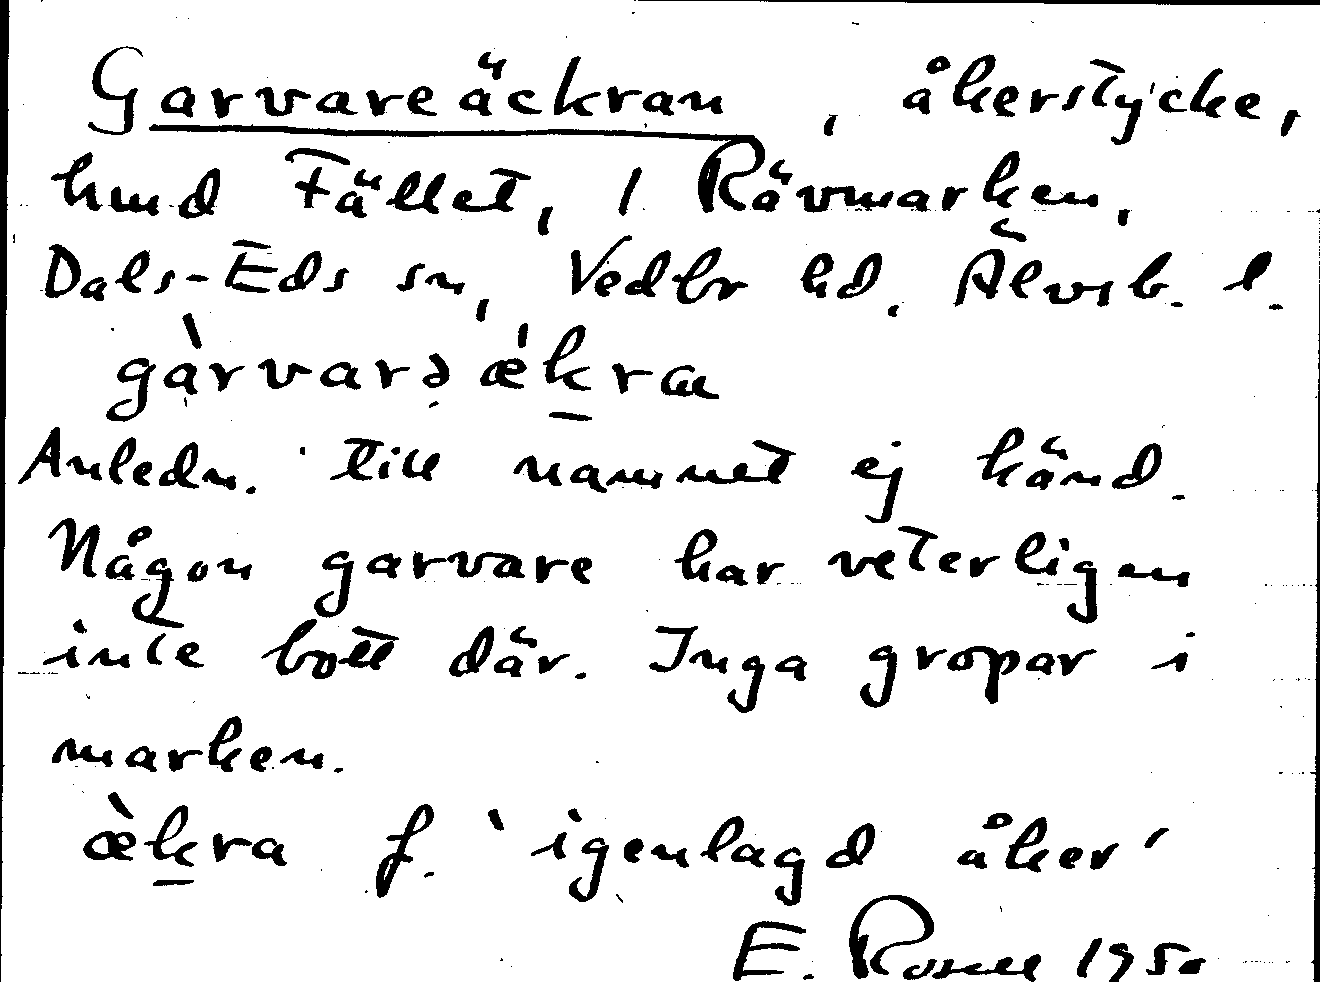 Garvareäckran, åkerstycke,
hmd Fället, 1 Rävmarken,
Dals-Eds sn, Vedbr hd. Älvsb. l.
gàrvarə ǽkra
Anledn. till namnet ej känd.
Någon garvare har veterligen
inte bott där. Inga gropar i
marken.
æ̀kra f. 'igenlagd åker'
E. Rosell 1950